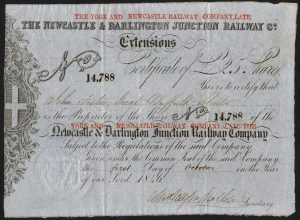 THE YORK AND NEWCASTLE RAILWAY COMPANY, LATE
THE NEWCASTLE & DARLINGTON JUNCTION RAILWAY Co
Extensions
No 14.788 Certificate of £25. Share
This is to certify that
is the Proprietor of the Share No 14.788 of the
YORK AND NEWCASTLE RAILWAY COMPANY, LATE THE
Newcastle & Darlington Junction Railway Company
Subject to the Regulations of the said Company
Given under the Common Seal of the said Company,
the first Day of October in the
year of our Lord 1846
Secretary